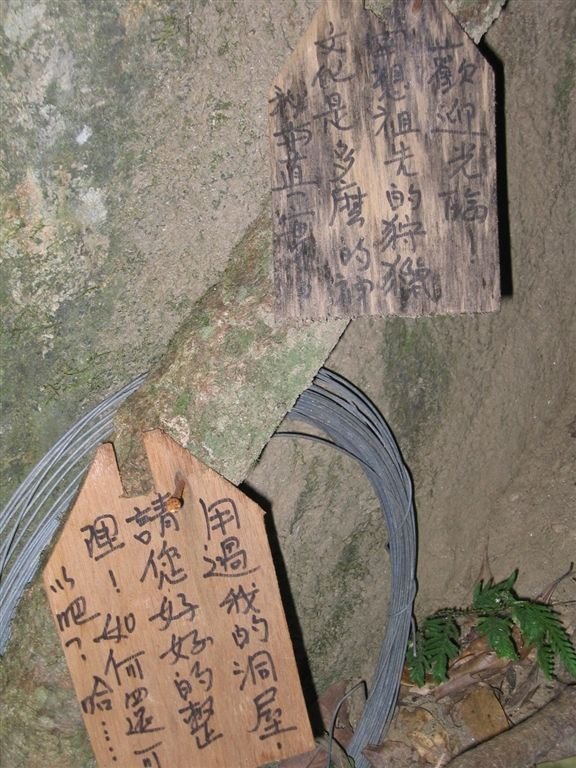 歡迎光臨!
回想祖先的狩獵
文化是多麼的神
秘
用過我的洞屋!
請您好好的整
理!如何還可
以吧?哈……